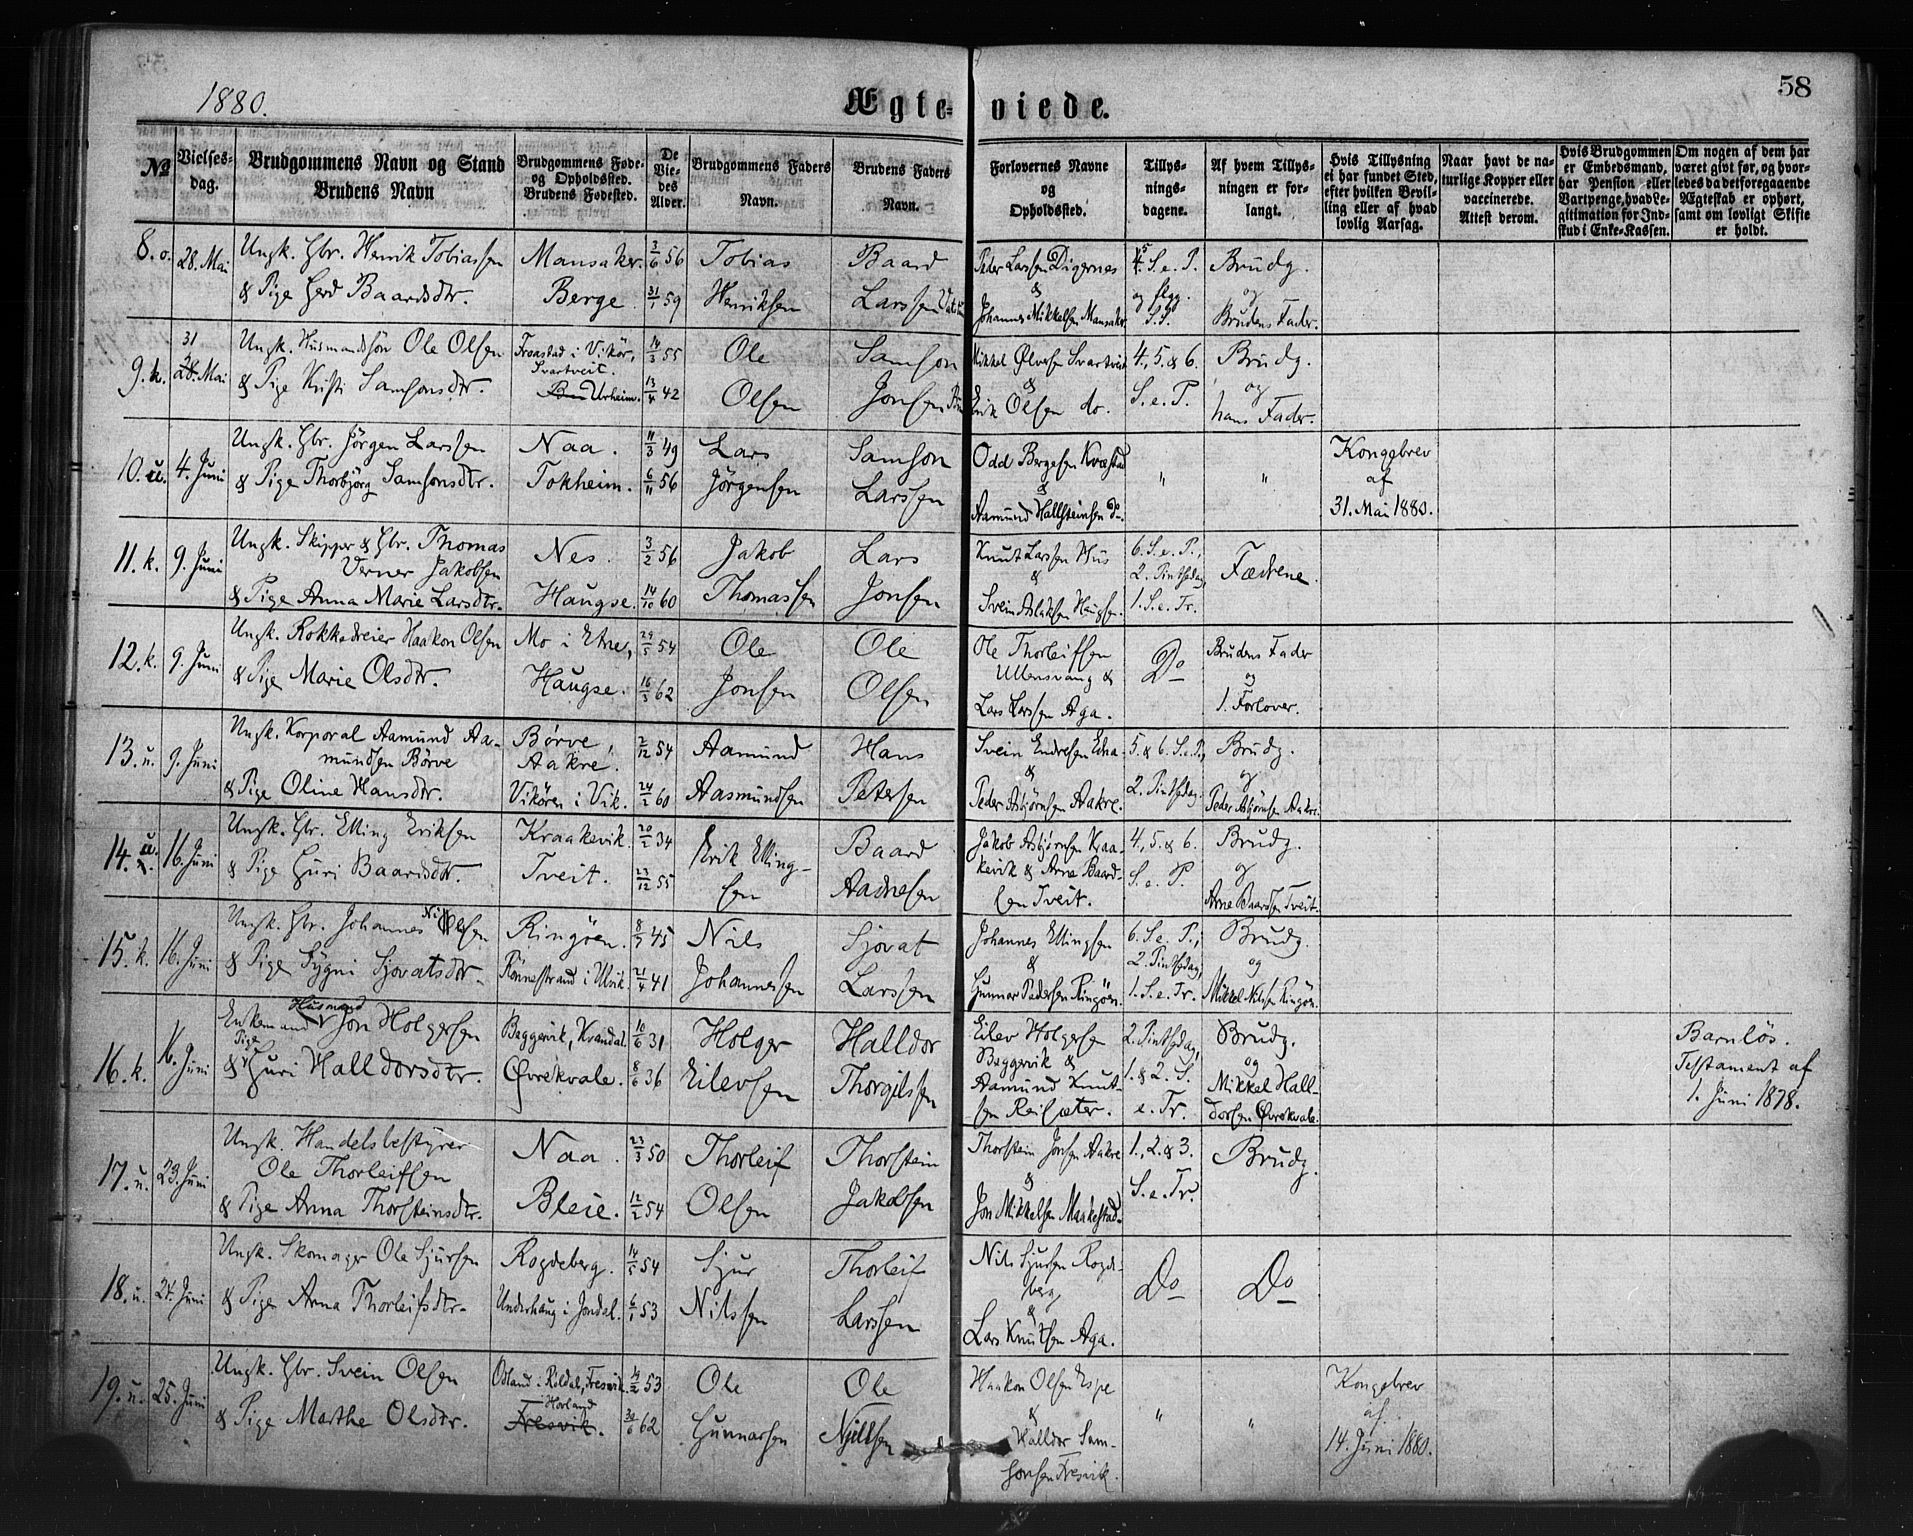 58
1880.
Ægte-viede.
No
Vielses-
dag.
Brudgommens Navn og Stand
Brudens Navn
Brudgommens Føde-
og Opholdssted.
Brudens Fødested.
De
Vie-
des
Alder.
Brudgommens Faders
Navn.
Brudens Faders
Navn.
Forlovernes Navne
og
Opholdssted.
Tillys-
nings-
dagene.
Af hvem Tillys-
ningen er for-
langt.
Hvis Tillysning
ei har fundet Sted,
efter hvilken Bevil-
ling eller af hvad
lovlig Aarsag.
Naar havt de na-
turlige Kopper eller
vaccinerede.
Attest derom.
Hvis Brudgommen
er Embedsmand,
har Pension eller
Vartpenge, hvad Le-
gitimation for Ind-
skud i Enke-Kassen.
Om nogen af dem har
været givt før, og hvor-
ledes da det foregaaende
Ægteskab er ophørt,
samt om lovligt Skifte
er holdt.
8. o. 28. Mai
Ungk. Gbr. Henrik Tobiassen
& Pige Gerd Baardsdtr.
Mansaker.
Berge.
3/6 56
31/1 59
Tobias
Henriksen
Baard
Larssen
Peder Larssen Digernes
&
Johannes Mikkelsen Mansaker.
S. e. P.
og
Brudg.
og
Brudens Fader.
9. k. 31 28. Mai
Ungk. Husmandssøn Ole Olsen
& Pige Kristi Samsonsdtr.
i Vikör,
Svartveit.
Urheim.
14/3 55
13/4 42
Ole
Olsen
Samson
Jonsen
Mikkel Ølversen Svartveit
&
Erik Olsen do.
4., 5. & 6.
S. e. P.
Brudg.
og
hans Fader.
10. u. 4. Juni
Ungk. Gbr. Jörgen Larssen
& Pige Thorbjörg Samsonsdtr.
Naa.
Tokheim.
11/3 49
6/11 56
Lars
Jörgensen
Samson
Larssen
Odd Bergesen Kvæstad
&
Aamund Hallsteinsen do.
"
"
Kongebrev
af
31. Mai 1880.
11. k. 9. Juni
Ungk. Skipper & Gbr. Thomas
Verner Jakobsen
& Pige Anna Marie Larsdtr.
Nes.
Haugse.
3/2 56
14/10 60
Jakob
Thomassen
Lars
Jonsen
Knut Larssen Hus
&
Svein Aslaksen Haugse.
6. S. e. P.,
2. Pintsedag,
1. S. e. Tr.
Fædrene.
12. k. 9. Juni
Ungk. Rokkedreier Haakon Olsen
& Pige Marie Olsdtr.
Mo i Etne,
Haugse.
29/5 54
16/3 62
Ole
Jonsen
Ole
Olsen
Ole Thorleifsen
Ullensvang &
Lars Larssen Aga.
Do
Brudens Fader
og
1. Forlover.
13. u. 9. Juni
Ungk. Korporal Aamund Aa-
mundsen Börve
& Pige Oline Hansdtr.
Börve,
Aakre.
Vikören i Vik.
2/12 54
24/2 60
Aamund
Aasmundsen
Hans
Petersen
Svein Endresen Edna
&
Peder Asbjörnsen Aakre.
5. & 6. S. e. P.,
2. Pintsedag.
Brudg.
og
Peder Asbjörnsen Aakre.
14. u. 16. Juni
Ungk. Gbr. Elling Eriksen
& Pige Guri Baardsdtr.
Kraakevik.
Tveit.
20/2 34
23/12 55
Erik Elling-
sen
Baard
Aadnesen
Jakob Asbjörnsen Kraa-
kevik & Arne Baard-
sen Tveit.
4., 5. & 6.
S. e. P.
Brudg.
og
Arne Baardsen Tveit.
15. k. 16. Juni
Ungk. Gbr. Johannes Nilsen
& Pige Sygni Sjovatsdtr.
Ringöen.
Rönnestrand i Ulvik.
8/7 45
21/4 41
Nils
Johannesen
Sjovat
Larssen
Johannes Ellingsen
&
Gunnar Pedersen Ringöen.
6. S. e. P.,
2. Pintsedag,
1. S. e. Tr.
Brudg.
og
Mikkel Nilsen Ringöen.
16. k. 16. Juni
Husmand
Enkemand Jon Holgersen
Pige
& Guri Halldorsdtr.
Baggervik, Kvandal.
Øvrekvale.
10/6 31
8/6 36
Holger
Eilevsen
Halldor
Thorgilssen
Eilev Holgersen
Baggervik &
Aamund Knut-
sen Reisæter.
2. Pintsedag,
1. & 2. S.
e. Tr.
Brudg.
og
Mikkel Hall-
dorsen Øvrekvale.
Barnløs.
Testament af
1. Juni 1878.
17. u. 23. Juni
Ungk. Handelsbestyrer
Ole Thorleifsen
& Pige Anna Thorsteinsdtr.
Naa.
Bleie.
23/3 50
12/2 54
Thorleif
Olsen
Thorstein
Jakobsen
Thorstein Jonsen Aakre
&
Jon Mikkelsen Maakestad.
1., 2. & 3.
S. e. Tr.
Brudg.
18. u. 24. Juni
Ungk. Skomager Ole Sjursen
& Pige Anna Thorleifsdtr.
Rogdeberg.
Underhaug i Jondal.
14/5 54
6/1 53
Sjur
Nilssen
Thorleif
Larssen
Nils Sjursen Rogde-
berg
&
Lars Knutsen Aga.
Do
Do
19. u. 25. Juni
Ungk. Gbr. Svein Olsen
& Pige Marthe Olsdtr.
i Röldal, Fresvik.
Horland
Fresvik.
14/2 53
30/6 62
Ole
Gunnarsen
Ole
Njelsen
Haakon Olsen Espe
&
Halldor Sam-
sonsen Fresvik.
"
"
Kongebrev
af
14. Juni 1880.